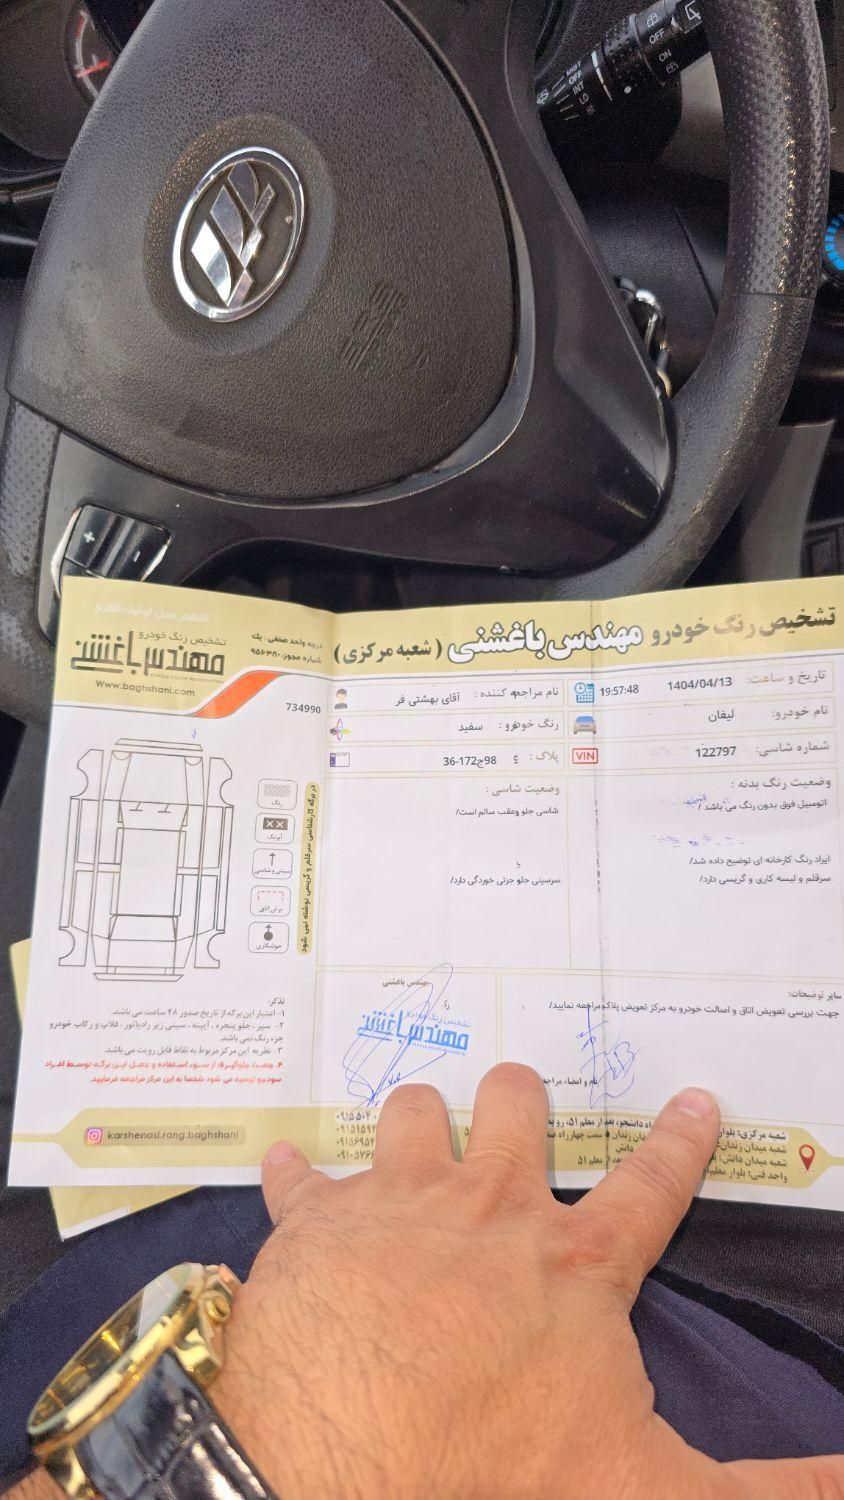 OFF
ON
MIST
OFF
INT
LO
HI
SRS
AIRBAG
+
-
اللهم عجل لولیک الفرج
تشخیص رنگ خودرو مهندس باغشنی ( شعبه مرکزی )
تشخیص رنگ خودرو
مهندس باغشنی
VEHICLE COLOR RECOGNITION
Www.baghshani.com
درجه واحد صنفی : یک
شماره مجوز: ۹۵۶۳۸۰
734990
تاریخ و ساعت: 1404/04/13 19:57:48
نام مراجعه کننده : آقای بهشتی فر
نام خودرو: لیفان
رنگ خودرو : سفید
شماره شاسی: 122797 VIN
پلاک : 36-172ج98
وضعیت رنگ بدنه :
اتومبیل فوق بدون رنگ می باشد /
ایراد رنگ کارخانه ای توضیح داده شد/
سرقلم و لیسه کاری و گریسی دارد/
وضعیت شاسی :
شاسی جلو وعقب سالم است/
سرسینی جلو جزئی خوردگی دارد/
رنگ
آبرنگ
سینی و شاسی
برش اتاق
جوشکاری
در برگه کارشناسی سرقلم و گریسی نوشته نمی شود
سایر توضیحات:
جهت بررسی تعویض اتاق و اصالت خودرو به مرکز تعویض پلاک مراجعه نمایید/
مهندس باغشنی
تشخیص رنگ خودرو
مهندس باغشنی
نام و امضاء
تذکر:
۱- اعتبار این برگه از تاریخ صدور ۴۸ ساعت می باشد.
۲- سپر ، جلو پنجره ، آیینه ، سینی زیر رادیاتور ، قلاب و رکاب خودرو
جزء رنگ نمی باشد.
۳- نظریه این مرکز مربوط به نقاط قابل رویت می باشد.
۴. جهت جلوگیری از سوء استفاده و جعل این برگه توسط افراد
سودجو توصیه می شود شخصا به این مرکز مراجعه فرمایید.
karshenasi.rang.baghshani
شعبه مرکزی: بلوار
شعبه میدان زندان:
شعبه میدان دانش:
واحد فنی: بلوار معلم